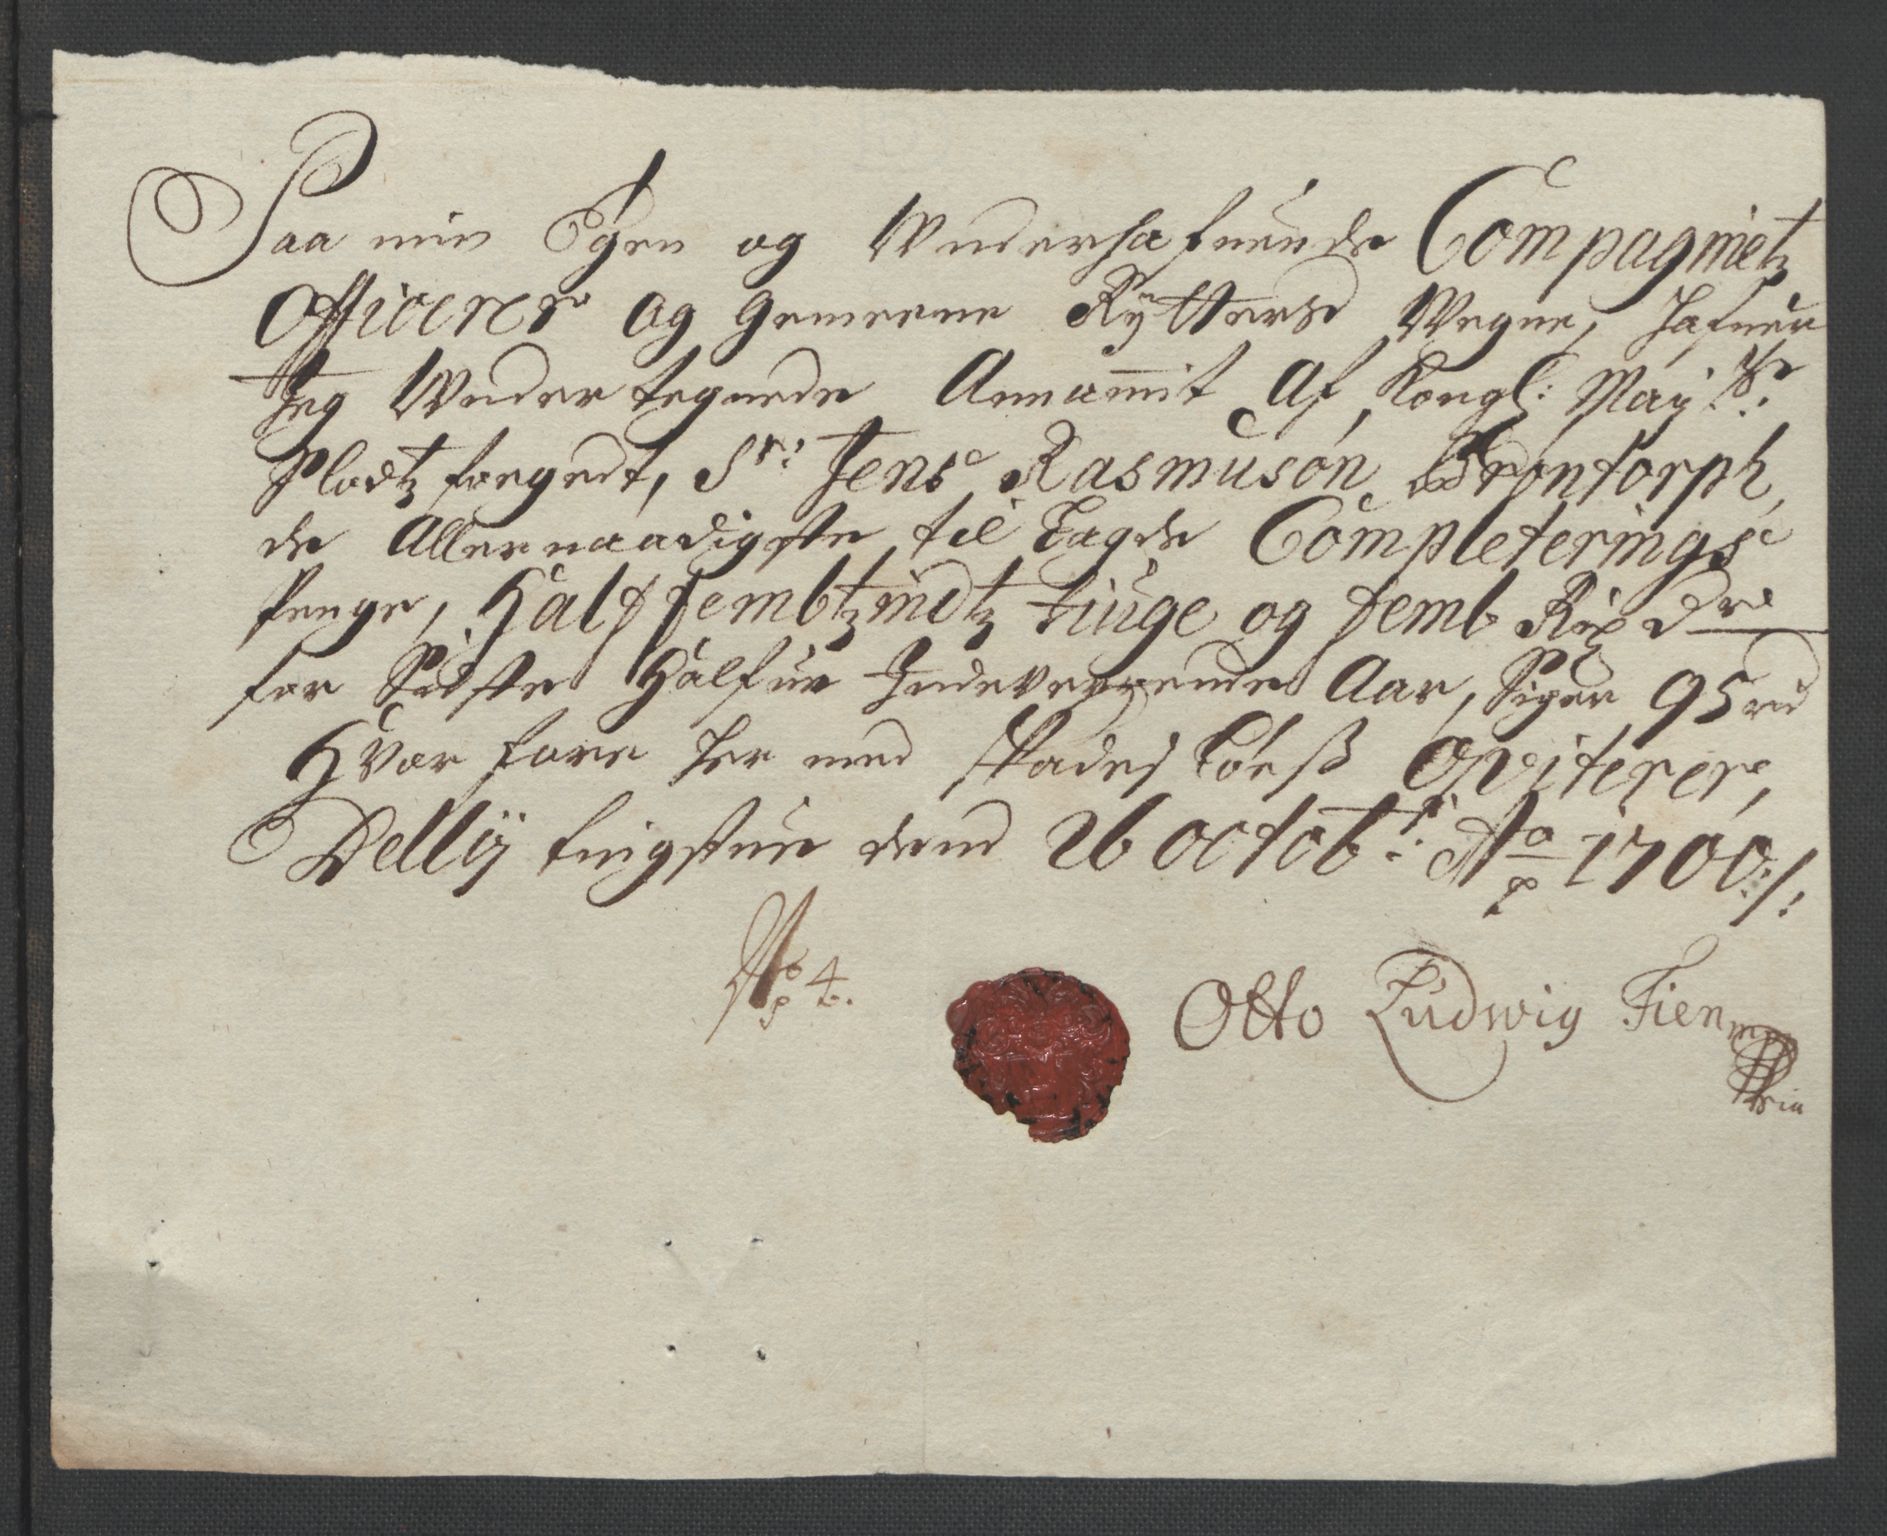 Paa min Egen og Underhafuende Compagnietz
Officerer og Gemeene Rÿtters Wegne, hafuer
Jeg Undertegnede Annammit af Kongl: Maÿ:tz
Slodtz fougedt, Sr: Jens Rasmuson Brontorph
de Allernaadigste till Lagde Completerings
Penge, Half fembtzindtz tiuge og femb Rix Dre
for Sidste Halfue Indeverrende Aar, Siger 95 rd
Hvorfore her med skadesløeß Qviterer,
Dellij tingstue dend 26 octobr: Ao 1700:/:
No 4.
Otto Ludwig Fien